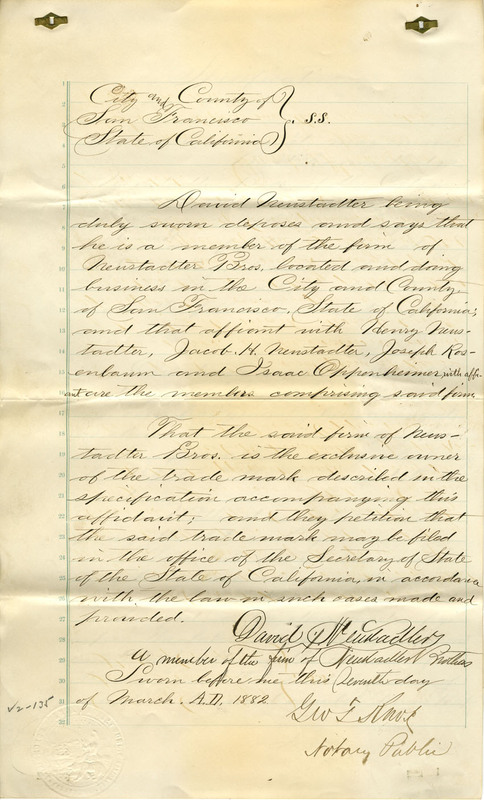 City and County of
San Francisco } S.S.
State of California
David Neustadter being
duly sworn deposes and says that
he is a member of the firm of
Neustadter Bros. located and doing
business in the City and County
of San Francisco, State of California;
and that affiant with Henry Neus-
tadter, Jacob H. Neustadter, Joseph Ros-
enbaum and Isaac Oppenheimer, with affi-
ant are the members comprising said firm
That the said firm of Neus-
tadter Bros. is the exclusive owner
of the trade mark described in the
specification accompanying this
affidavit; and they petition that
the said trade mark may be filed
in the office of the Secretary of State
of the State of California, in accordance
with the law in such cases made and
provided.
David Neustadter
A member of the firm of Neustadter Brothers
Sworn before me this seventh day
of March A.D. 1882
Geo T Knox
Notary Public
V2-135